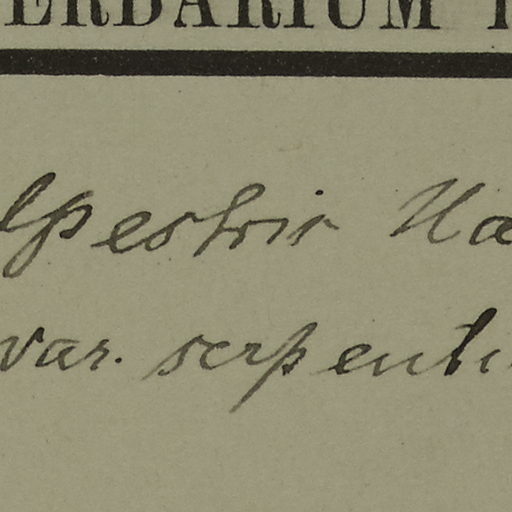 ERBARIUM
lpestris Ha
var. serpenti